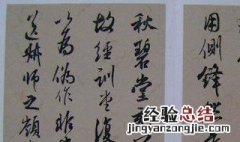 用側鋒
秋碧堂
故經訓堂復
以為偽作非
师之
经验总结
jingyanzongjie.com